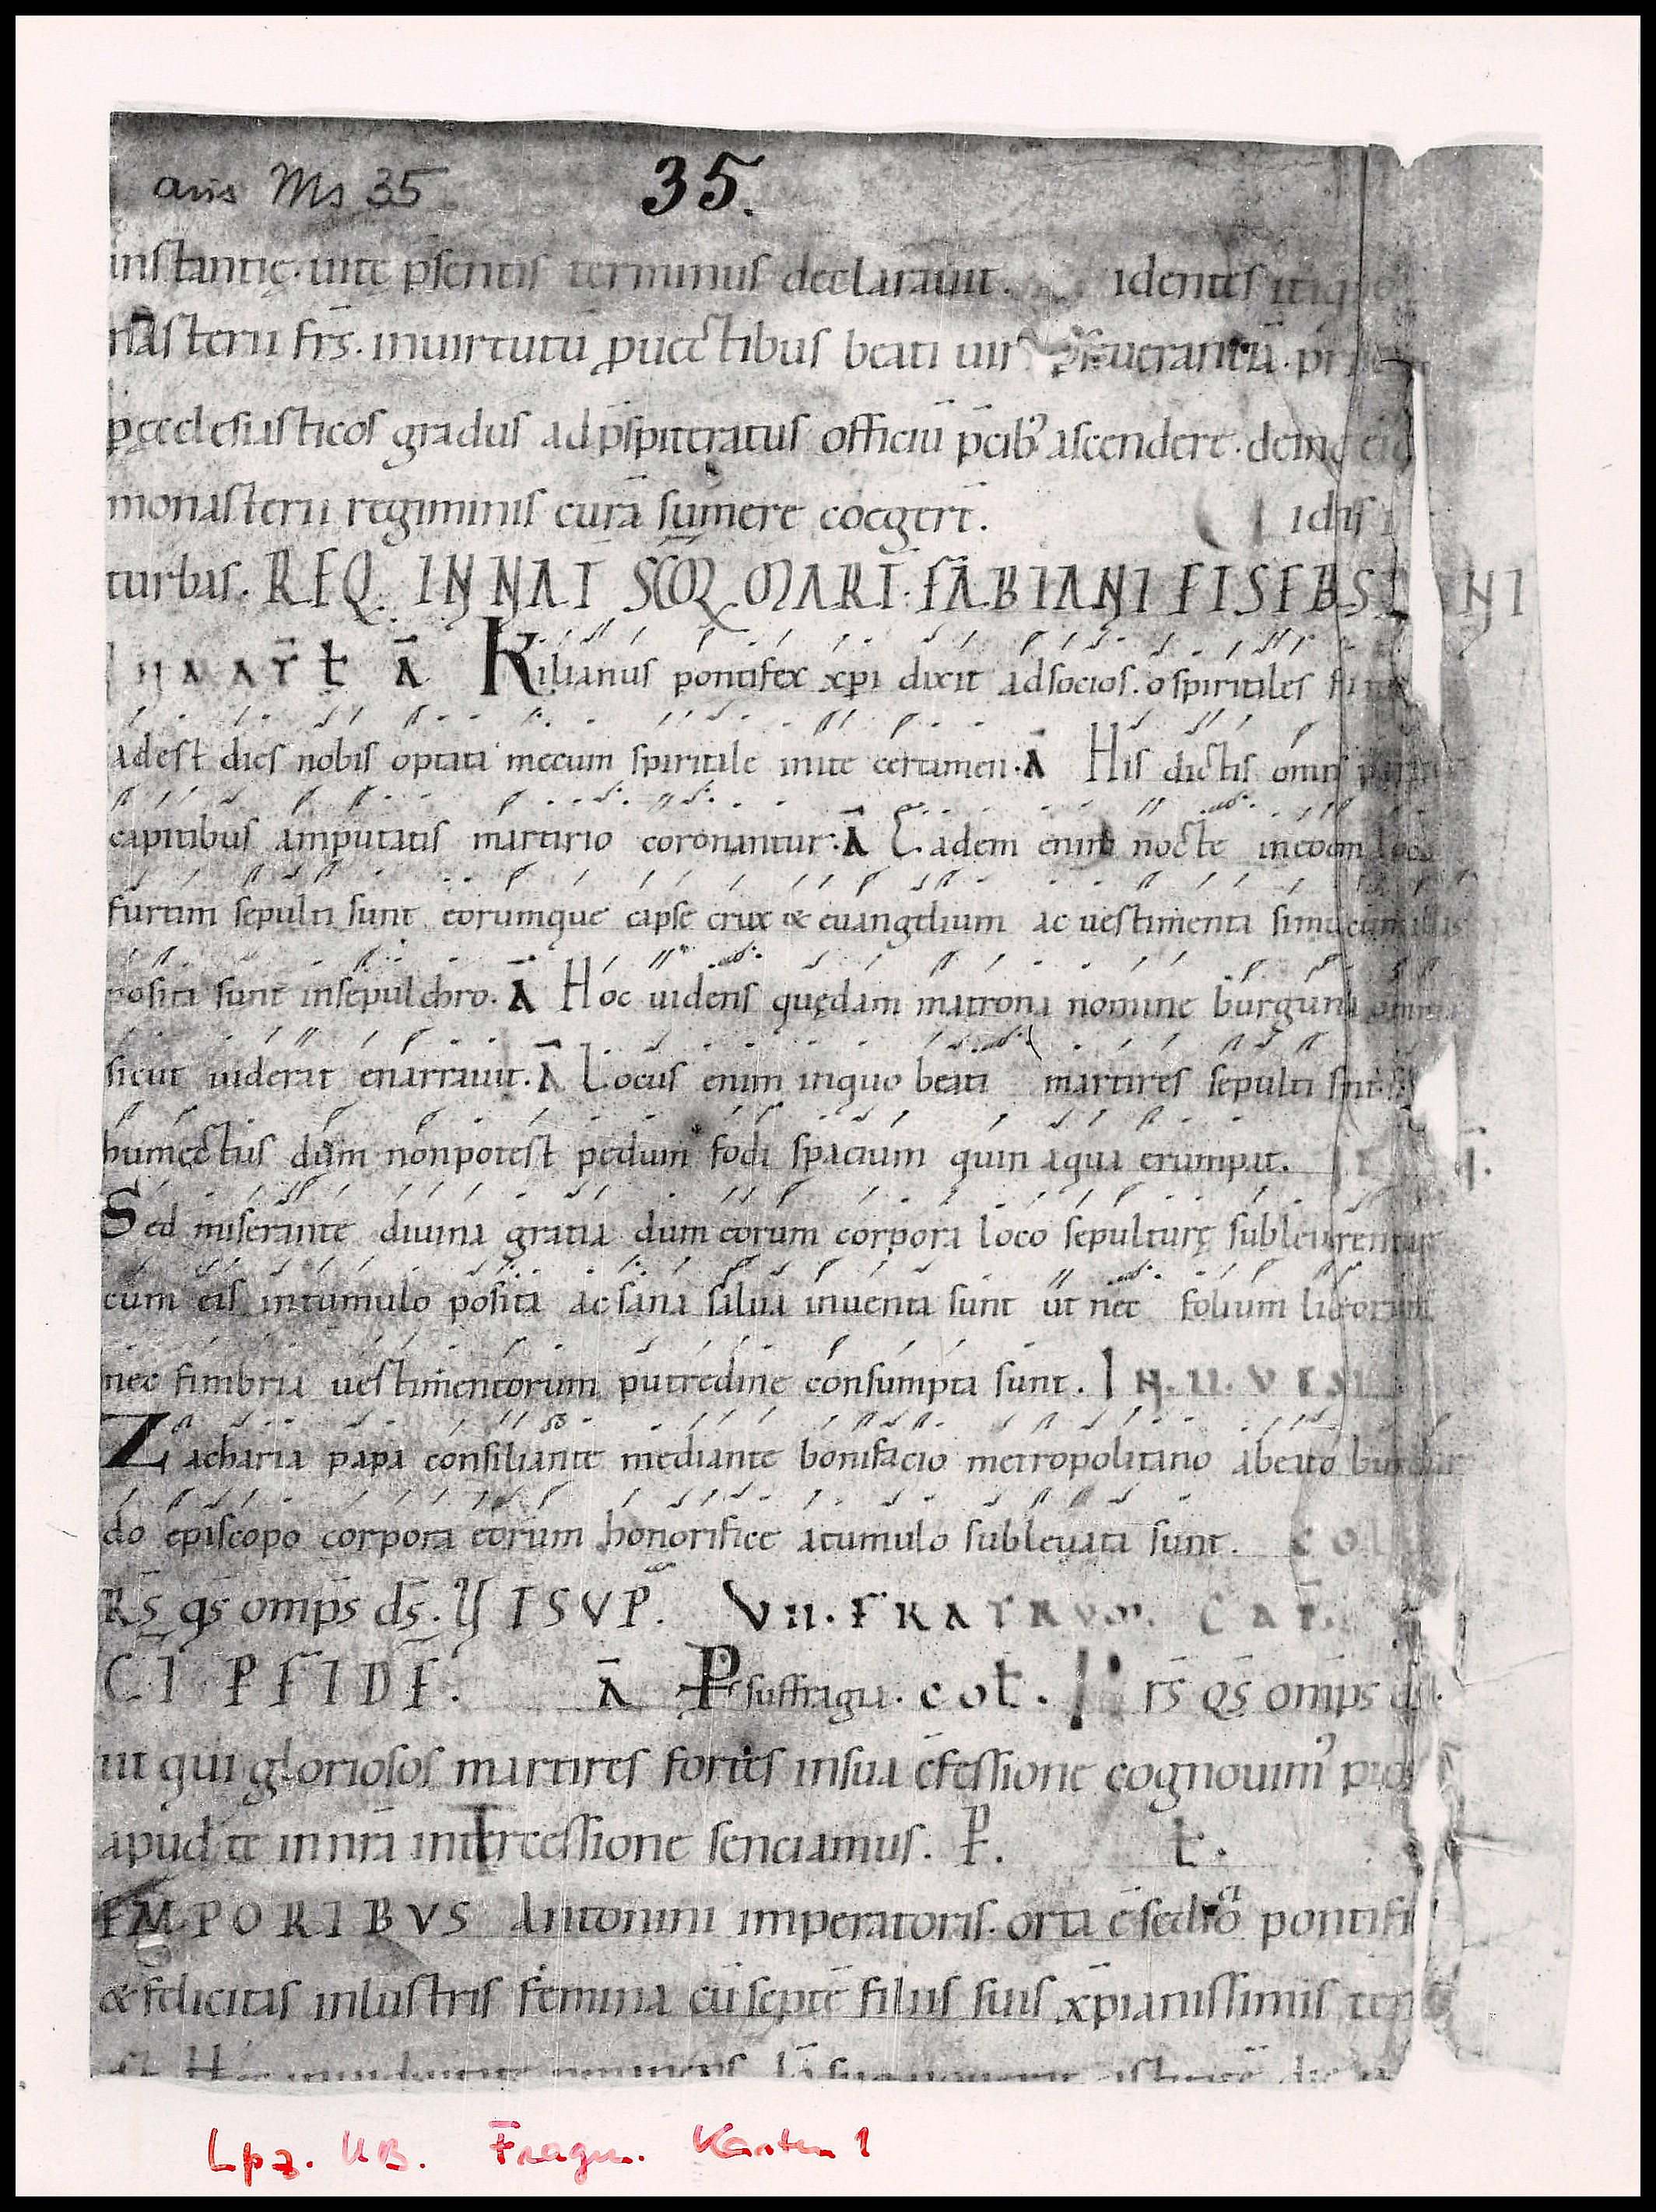 aus Ms 35 35.
instantię. uitę p̄sentis terminus declarauit. identes itiq
nasterii frs̄. inuirtutū ꝓuectibus beati uir
pęcclesiasticos gradus adp̄spiteratus officiū p̄cib' ascendere. deinc
monasterii regiminis curā sumere coegerт̄. idis
turbas. REQ. IN NAT SCO℞ MARI. FABIANI ET SEBSTIANI
IN MART ā Kilianus pontifex xp̄i dixit adsocios. o spiritiles
adest dies nobis optati mecum spiritile inite certamen. ā His dictis omnes
capitibus amputatis martirio coronantur: ā Eadem enim nocte ineodem loco
furtim sepulti sunt eorumque capse crux & euangelium ac uestimenta simul cum illis
posita sunt insepulchro. ā Hoc uidens quędam matrona nomine burguna omnia
sicut uiderat enarrauit. ā Locus enim inquo beati martires sepulti sunt
humectus dum nonpotest pedum fodi spacium quin aqua erumpat.
Sed miserante diuina gratia dum eorum corpora loco sepulturę subleuarentur
cum eis intumulo posita ac sana salua inuenta sunt ut nec folium librorum
nec fimbria uestimentorum putredine consumpta sunt. IN
Zacharia papa consiliante mediante bonifacio metropolitano abeato burchar
do episcopo corpora eorum honorifice atumulo subleuata sunt. COL
Rs̄ qs̄ omp̄s ds̄. Ꝩ I SVP. VII. FRATRVM. CAP.
CI P F I D E. ā P suffragia. cot. P rs̄ qs̄ omp̄s ds.
ut qui gloriosos martires fortes insua c̄fessione cognouim' pios
apud te innrā intercessione senciamus. P. t.
EMPORIBVS Antonini imperatoris. orta ē seditio pontifi
& felicitas inlustris femina cū septē filiis suis xp̄ianissimis ten
Lpz. UB. Fragm. Kasten 1